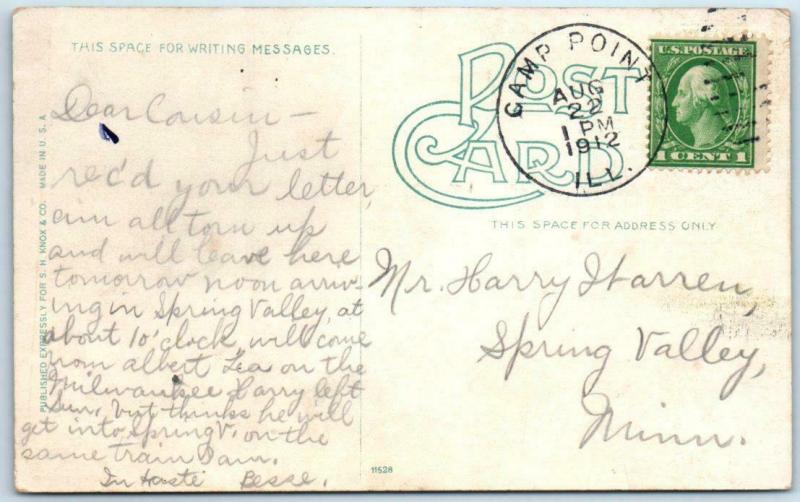 THIS SPACE FOR WRITING MESSAGES.
Dear Cousin —
Just
rec'd your letter,
am all torn up
and will leave here
tomorrow noon arriv-
ing in Spring Valley, at
about 10'clock, will come
from albert Lea on the
Milwaukee Harry left
Sun. but thinks he will
get into Spring V. on the
same train I am.
In Haste Besse.
PUBLISHED EXPRESSLY FOR S. H. KNOX & CO. MADE IN U.S.A.
POST
CARD
CAMP POINT
AUG
22
1 PM
1912
ILL.
U.S. POSTAGE
1 CENT 1
THIS SPACE FOR ADDRESS ONLY.
Mr. Harry Warren,
Spring Valley,
Minn.
11528